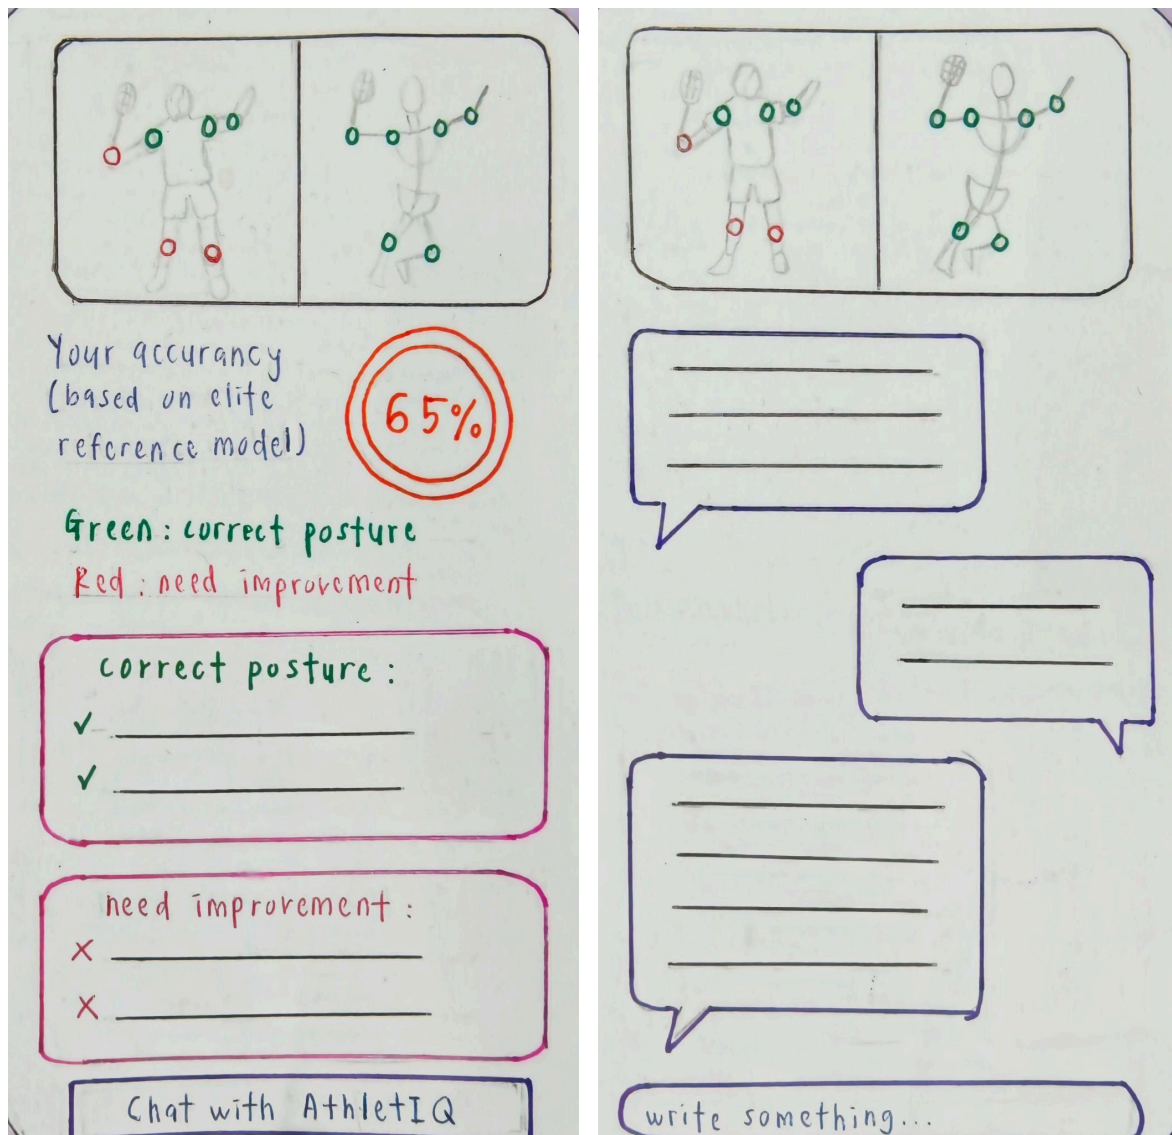 Your accurancy
(based on elite
reference model)
65%
Green : correct posture
Red : need improvement
correct posture :
✓
✓
need improvement :
X
X
Chat with AthletIQ
write something...